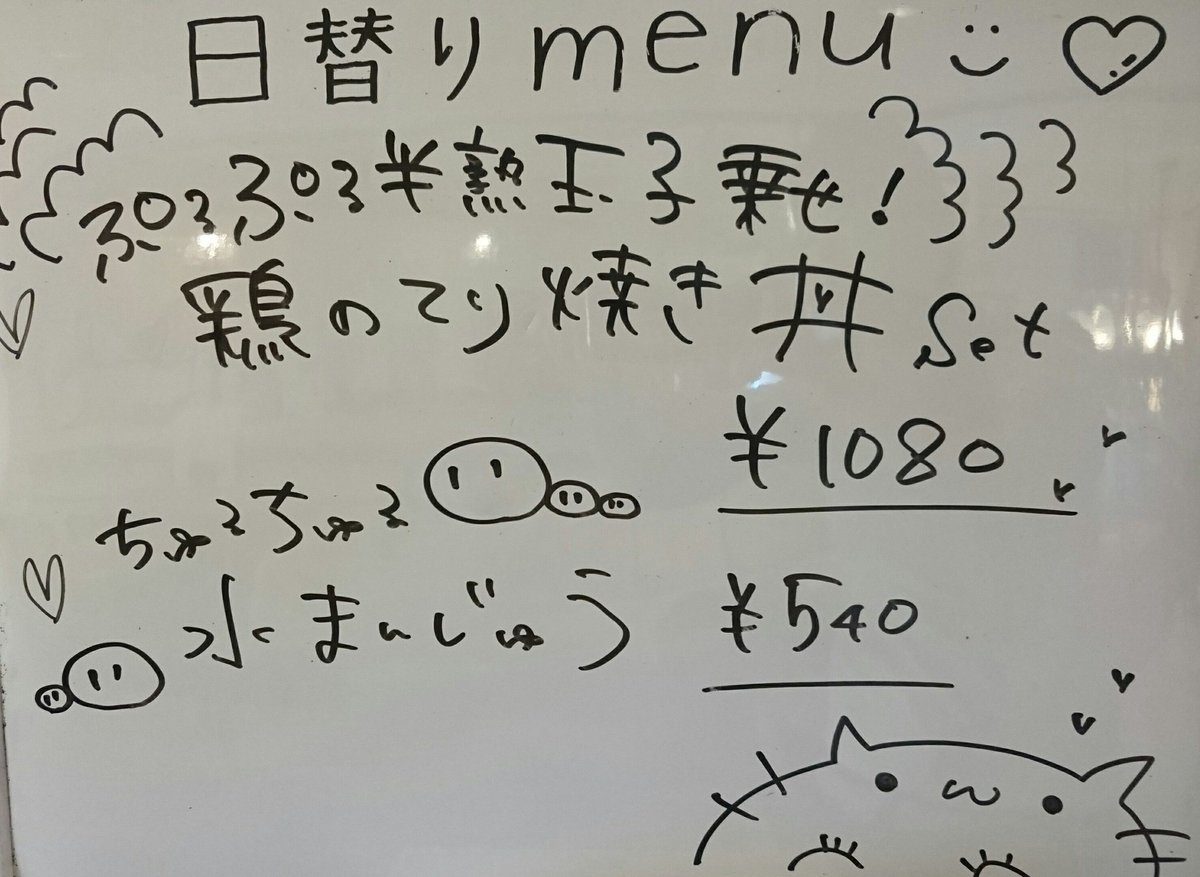 日替り menu
ぷるぷる半熟玉子乗せ!
鶏のてり焼き丼 Set
¥1080
ちゅるちゅる
水まんじゅう ¥540